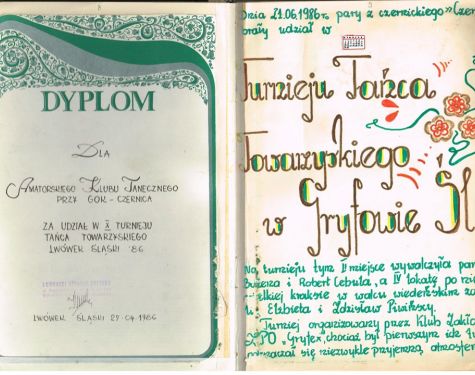 DYPLOM
DLA
AMATORSKIEGO KLUBU TANECZNEGO
PRZY GOK - CZERNICA
ZA UDZIAŁ W X TURNIEJU
TAŃCA TOWARZYSKIEGO
LWÓWEK ŚLĄSKI '86
LWÓWEK ŚLĄSKI 27.04.1986
Dnia 21.06.1986 r. pary z czernickiego
brały udział w
Turnieju Tańca
Towarzyskiego
w Gryfowie Śl
Na turnieju tym II miejsce wywalczyła
i Robert Cebula, a IV lokatę po
w walcu wiedeńskim
Elżbieta i Zdzisław
Turniej organizowany przez Klub Zakła
"Gryfex", chociaż był pierwszym
się niezwykle przyjemną atmosfer